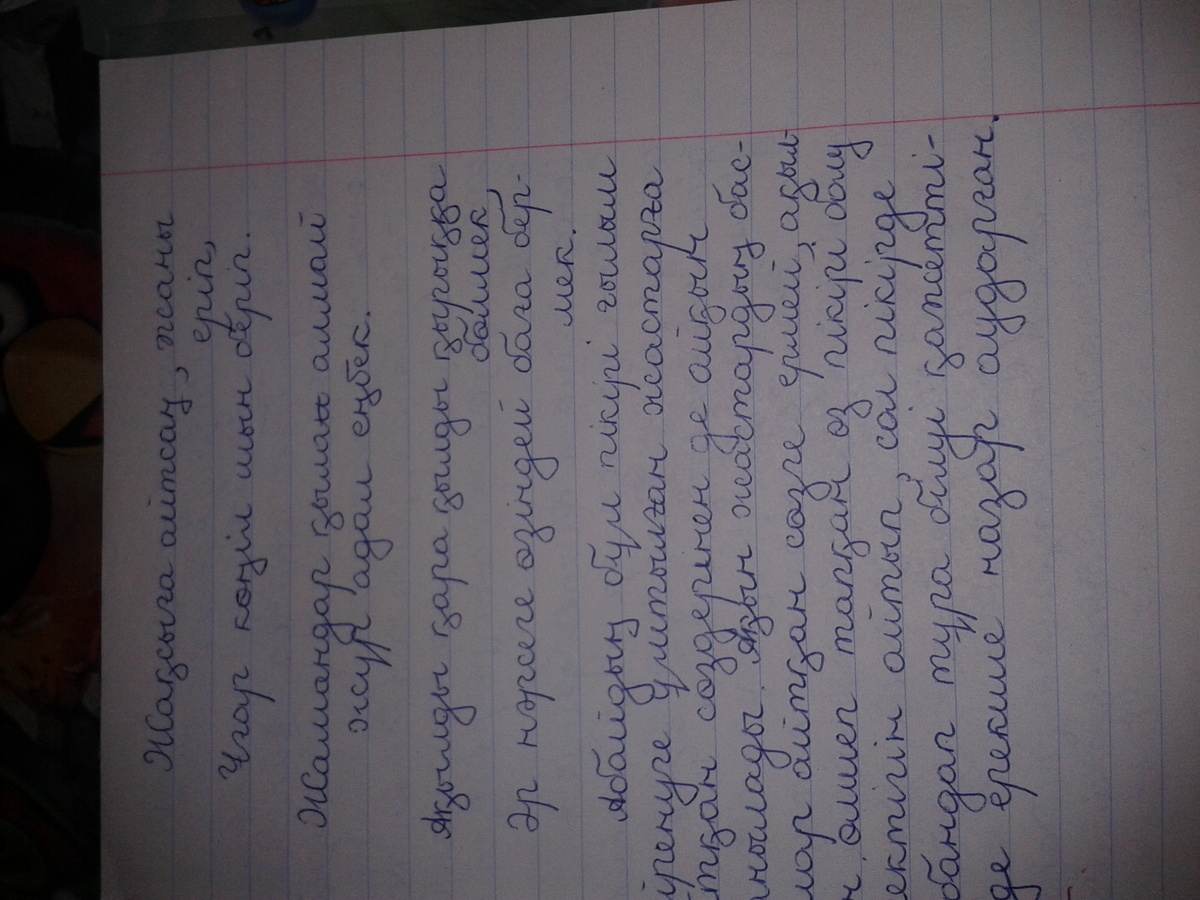 Жақсыға айтсаң, жаны
еріп,
Ұғар көңіл шын беріп.
Жамандар қылан алмай
жүр адам еңбек.
Ақылды қара қылды қырыққа
бөлмек,
Әр нәрсеге өзіндей баға бер-
мек.
Абайдың бұл пікірі ғылым
йренуге ұмтылған жастарға
тқан сөздерінен де айқын
нылады. Ақын жастардың бас-
лар айтқан сөзге ермей, ақыл-
н өлшеп тапқан өз пікірі болу
ектігін айтып, сол пікірде
бандап тұра білуі қажетті-
де ерекше назар аударған.